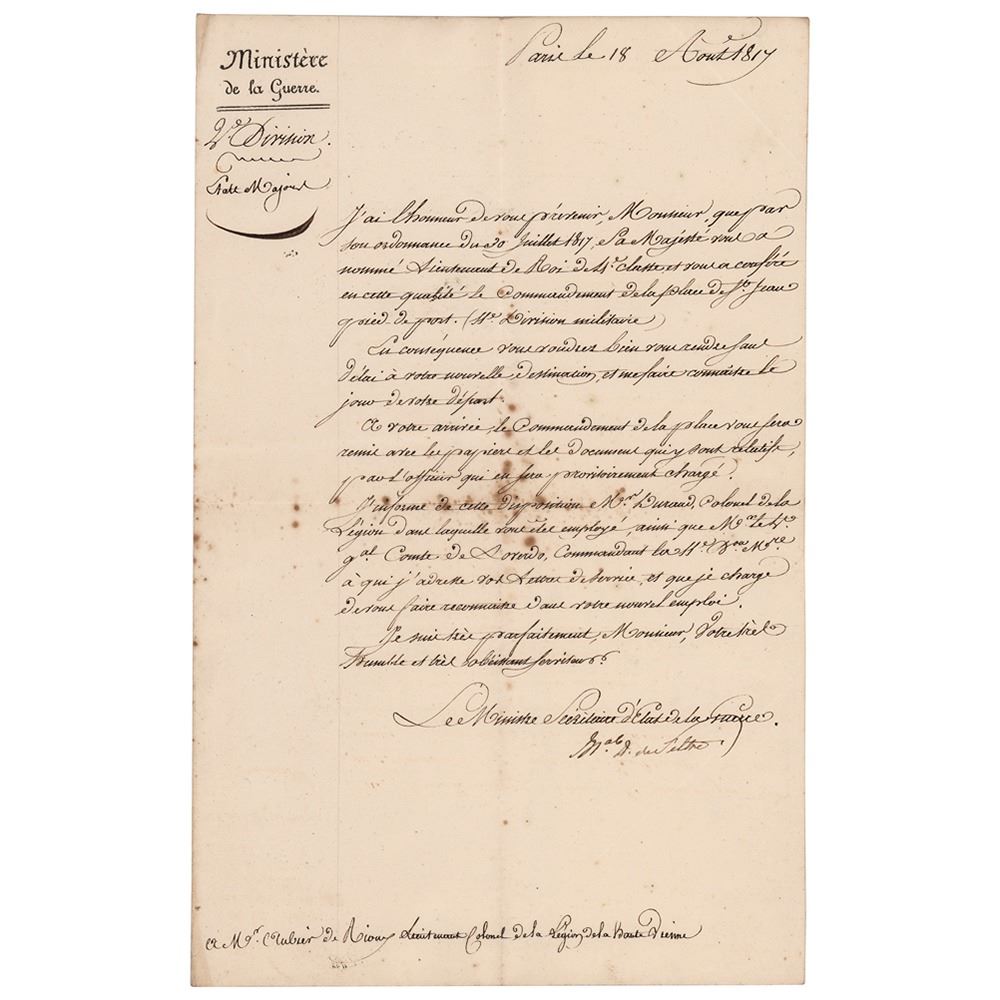 Paris le 18 Août 1817
Ministère
de la Guerre.
2e. Division.
Etats Majors
J'ai l'honneur de vous prévenir, Monsieur, que par
son ordonnance du 30 Juillet 1817, Sa Majesté vous a
nommé Lieutenant de Roi de 4e. classe et vous a conféré
en cette qualité le Commandement de la place de St. Jean
pied de port. (11e. Division militaire)
En conséquence vous voudrez bien vous rendre sans
délai à votre nouvelle destination, et me faire connaitre le
jour de votre départ.
A votre arrivée, le Commandement de la place vous sera
remis avec les papiers et les documens qui y sont relatifs,
par l'officier qui en sera provisoirement chargé.
J'informe de cette disposition Mr. Durand, Colonel de la
Légion dans laquelle vous êtes employé, ainsi que Mr. le Lt.
gal. Comte de Loverdo, Commandant la 11e. Don. Mre.
à qui j'adresse vos Lettres de Service, et que je charge
de vous faire reconnaitre dans votre nouvel emploi.
Je suis très parfaitement, Monsieur, Votre très
humble et très obéissant serviteur.
Le Ministre Secrétaire d'Etat de la Guerre.
Mal. D. de Feltre
A Mr. de Rioux Lieutenant Colonel de la Légion de la Haute Vienne